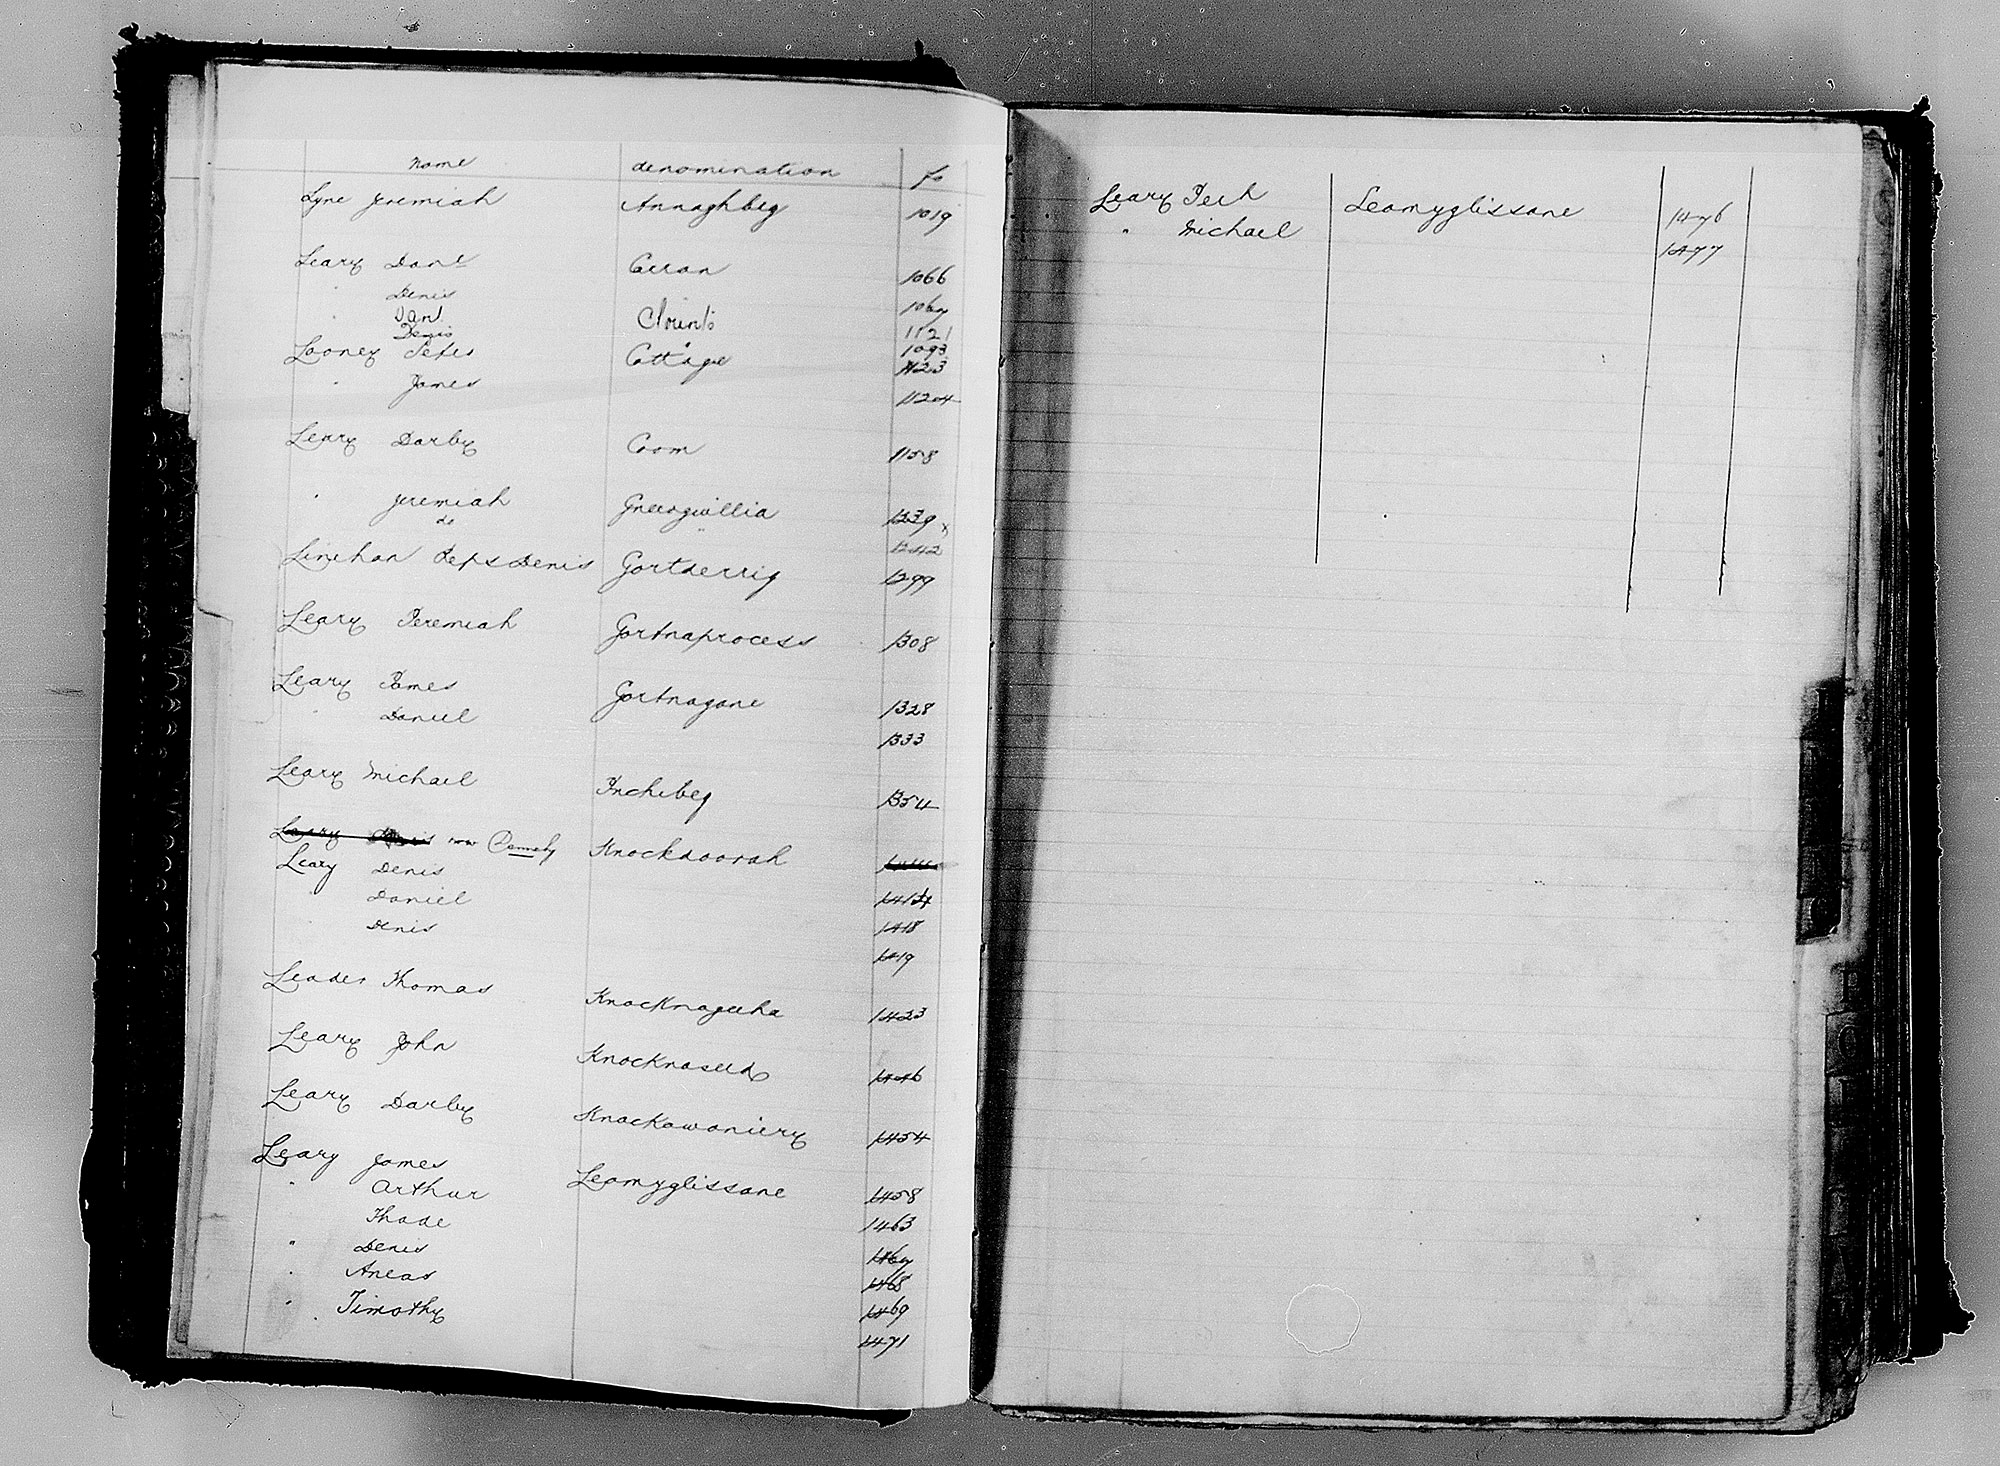 Name denomination fo
Lyne Jeremiah Annaghbeg 1019
Leary Danl Carran 1066
" Denis 1067
Danl Clounts 1121
Denis " 1093
Looney Peter Cottage 1123
" James 1124
Leary Darby Coom 1158
" Jeremiah Gneevgullia 1239 x
do " 1242
Linehan Reps Denis Gortderrig 1299
Leary Jeremiah Gortnaprocess 1308
Leary James Gortnagane 1328
" Daniel 1333
Leary Michael Inchibeg 1354
Leary Denis now Dennehy Knockdoorah
Leary Denis 1414
" Daniel 1418
" Denis 1419
Leader Thomas Knocknageeha 1423
Leary John Knocknaseed 1446
Leary Darby Knockawoniery 1454
Leary James Leamyglissane 1458
" Arthur 1463
Thade 1467
" Denis 1468
" Aneas 1469
" Timothy 1471
Leary Jerh Leamyglissane 1476
" Michael 1477